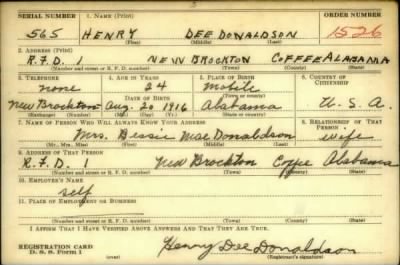 SERIAL NUMBER 1. NAME (Print) ORDER NUMBER
565 HENRY DEE DONALDSON 1526
(First) (Middle) (Last)
2. ADDRESS (Print)
R.F.D. 1 NEW BROCKTON COFFEE ALABAMA
(Number and street or R. F. D. number) (Town) (County) (State)
3. TELEPHONE 4. AGE IN YEARS 5. PLACE OF BIRTH 6. COUNTRY OF CITIZENSHIP
none 24 Mobile
DATE OF BIRTH
New Brockton Aug. 20 1916 Alabama U. S. A.
(Exchange) (Number) (Mo.) (Day) (Yr.) (State or country)
7. NAME OF PERSON WHO WILL ALWAYS KNOW YOUR ADDRESS 8. RELATIONSHIP OF THAT PERSON
Mrs. Bessie Mae Donaldson wife
(Mr., Mrs., Miss) (First) (Middle) (Last)
9. ADDRESS OF THAT PERSON
R.F.D. 1 New Brockton Coffee Alabama
(Number and street or R. F. D. number) (Town) (County) (State)
10. EMPLOYER'S NAME
self
11. PLACE OF EMPLOYMENT OR BUSINESS
(Number and street or R. F. D. number) (Town) (County) (State)
I AFFIRM THAT I HAVE VERIFIED ABOVE ANSWERS AND THAT THEY ARE TRUE.
REGISTRATION CARD
D. S. S. Form 1 Henry Dee Donaldson
(Registrant's signature)